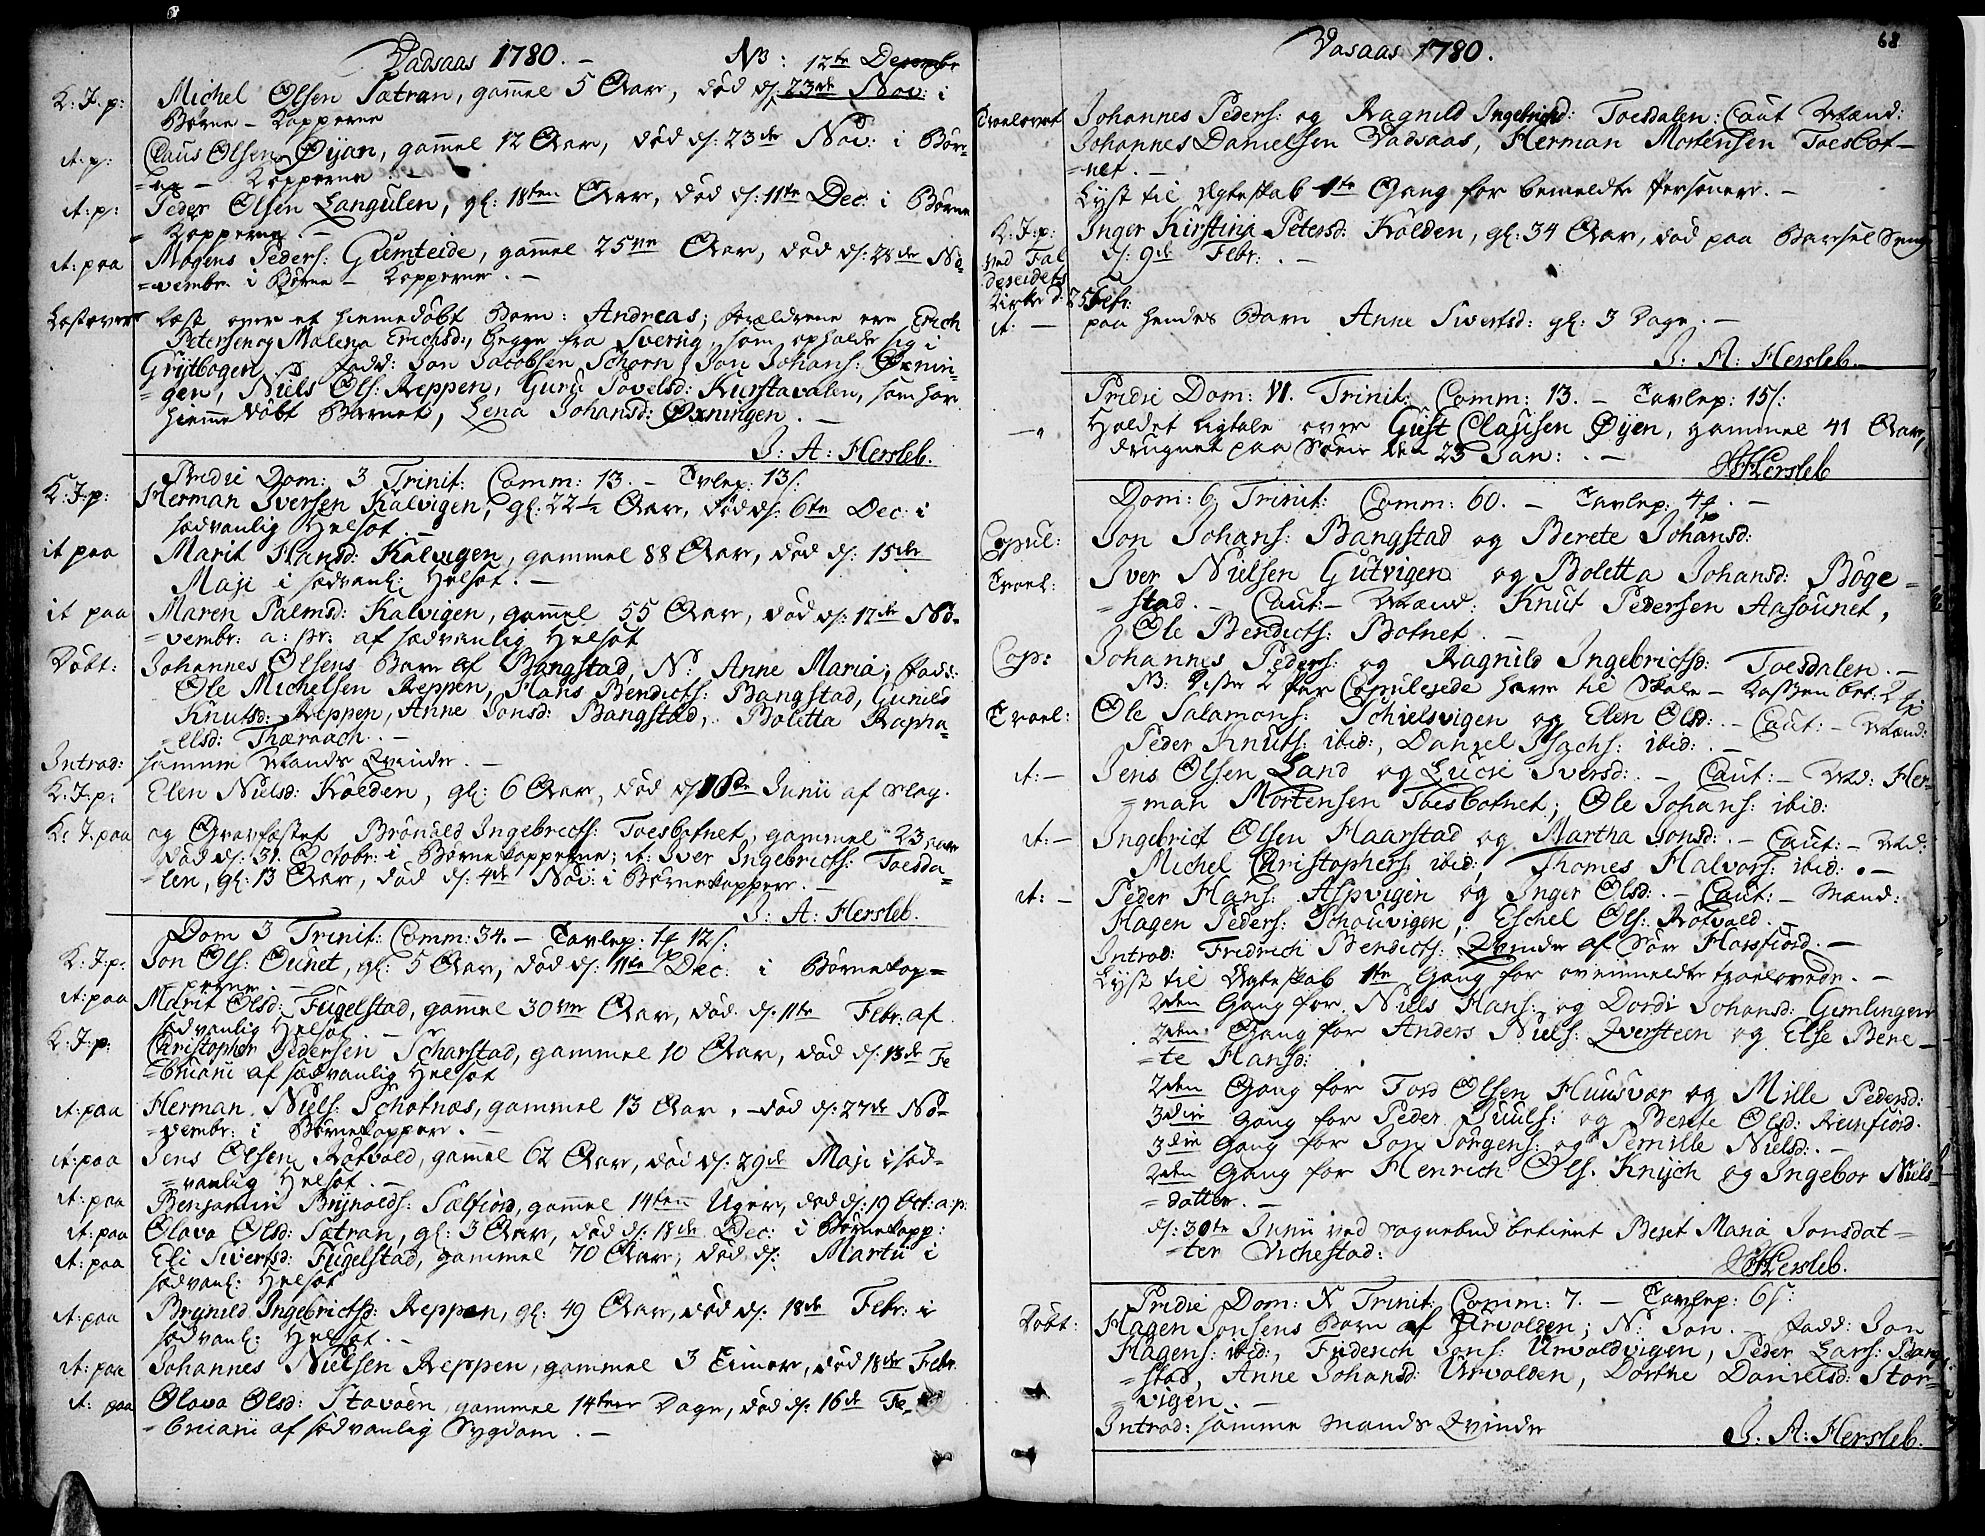 Vadsaas 1780. – NB: 12te Decembr
K: J: p: Michel Olsen Satran, gamel 5 Aar, død d: 23de Nov: i
Børne – Kopperne
it: p: Claus Olsen Øÿan, gamel 12 Aar, død d: 23de Nov: i Bør-
=ne – Kopperne –
it: p: Peder Olsen Langulen, gl: 18ten Aar, død d: 11te Dec: i Børne
Kopperne. –
it: paa Mogens Peders: Gumteide, gamel 25ve Aar, død d: 28de No-
=vembr. i Børne – Kopperne. –
Læst over Læst over et hiemedøbt Barn: Andreas; forældrene ere Erich
Petersen og Malena Erichsd:, begge fra Sverrig, som opholde sig i
Grÿtbogen. fadd: Jon Jacobsen Schorn, Jon Johans: Øxnin-
=gen, Niels Ols: Reppen, Guru Povelsd: Kurstavalen, som har
hieme døbt Barnet, Lena Johansd: Øxningen. –
J: A: Hersleb.
Pridie Dom: 3 Trinit: Comm: 13. – Tavlep: 13 s:
K: J: p: Herman Iversen Kalvigen, gl: 22½ Aar, død d: 6te Dec: i
sædvanlig Helsot –
it paa Marit Hansd: Kalvigen, gammel 88 Aar, død d: 15de
Maji i sædvanl: Helsot. –
it paa Maren Palmsd: Kalvigen, gamel 55 Aar, død d: 17de No-
=vembr: a: pr: af sædvanlig Helsot
Døbt: Johannes Olsens Barn af Bangstad, N: Anne Maria; fadd:
Ole Michelsen Reppen, Hans Bendicts: Bangstad, Gunild
Knutsd: Reppen, Anne Jonsd: Bangstad, Boletta Rapha-
=elsd: Thæraach. –
Introd: samme Mands Qvinde. –
K: J: p: Elen Nielsd: Kolden, gl: 6 Aar, død d: 16de Junii af Slag.
K: J: paa og Gravfæstet Brønild Ingebricts: Toesbotnet, gammel 23 Aar
død d: 31. Octobr: i Børnekopperne; it: Iver Ingebricts: Toesda-
=len, gl: 13 Aar, død d: 4de Nov: i Børnekopper. –
J: A: Hersleb.
Dom 3 Trinit: Comm: 34. – Tavlep: 12 s:
K: J: p: Jon Ols: Ounet, gl: 5 Aar, død d: 11te Dec: i Børnekop=
perne. –
it: paa Marit Olsd: Fugelstad, gammel 30ve Aar, død d: 11te Febr: af
sædvanlig Helsot –
K: J: p: Christopher Pedersen Scharstad, gammel 10 Aar, død d: 13de Fe
=bruarii af sædvanlig Helsot
it: paa Herman Niels: Schotnæs, gammel 13 Aar, – død d: 27de No-
=vembr: i Børnekopper. –
it: paa Jens Olsen Røtvold, gamel 62 Aar, død d: 29de Maji i sæd-
=vanlig Helsot. –
it: paa Benjamin Brynolds: Sælfiord, gamel 14ten Uger, død d: 19 Oct: a: p:
it: paa Olava Olsd: Satran, gl: 3 Aar, død d: 18de Dec: i Børnekopp:
it: paa Eli Sivertsd: Fugelstad, gammel 70 Aar, død d: Martii i
sædvanl: Helsot
it: paa Brynild Ingebrictsd: Reppen, gl: 49 Aar, død d: 18de Febr: i
sædvanl: Helsot. –
it: paa Johannes Nielsen Reppen, gammel 3 Timer, død 18de Febr.
it: paa Olava Olsd: Stavøen, gammel 14ten Dage, død d: 16de Fe-
=bruarii af sædvanlig Sygdom. –
68
Vasaas 1780.
Troelovet Johannes Peders: og Ragnild Ingebrictsd: Toesdalen: Caut Mænd:
Johannes Danielsen Vadsaas, Herman Mortensen Toesbot-
=net. –
Lyst til Egteskab 1te Gang for bemeldte Personer. –
K: J: p: Inger Kirstina Petersd: Kolden, gl: 34 Aar, død paa Barsel Seng
ved Fol d: 9de Febr: . –
dereidets
Kirke d: 25 Febr:
it: – paa hendes Barn Anne Sivertsd: gl: 3 Dage. –
J: A: Hersleb.
Pridie Dom: VI. Trinit: Comm: 13. – Tavlep: 15 s:
–" Holdet Ligtale over Gust Clausen Øyen, gammel 41 Aar,
drugnet paa Søen den 23 Jan: . –
JAHersleb
Dom: 6. Trinit: Comm: 60. – Tavlep: –
Copul: Jon Johans: Bangstad og Berete Johansd:
Troel: Iver Nielsen Gutvigen og Boletta Johansd: Böge-
=stad. – Caut: – Mænd: Knut Pedersen Aasounet,
Ole Bendicts: Botnet. –
Cop: Johannes Peders: og Ragnild Ingebrictsd: Toesdalen. –
NB: disse 2 Par Copulerede have til Skole – Kassen bet:
Troel: Ole Salamons: Schielsvigen og Elen Olsd: – Caut: – Mænd:
Peder Knuts: ibid:, Daniel Isachs: ibid: . –
it: – Jens Olsen Land og Lucie Iversd: . – Caut: – Md: Her-
=man Mortensen Toesbotnet, Ole Johans: ibid:
it: – Ingebrict Olsen Haarstad og Martha Jonsd: – Caut: – Md:
Michel Christophers: ibid:, Thomes Halvors: ibid: . –
it: – Peder Hans: Aspvigen og Inger Olsd: – Caut: – Mænd:
Hagen Peders: Schouvigen, Eschel Ols: Røtvold. –
Introd: Fridrich Bendicts: Qvinde af Sør Horsfiord. –
Lyst til Egteskab 1te Gang for ovenmeldte troelovede. –
2den Gang for Niels Hans: og Dordi Johansd: Gimlingen
2den Gang for Anders Niels: Qversteen og Else Bere-
=te Hansd:
2den Gang for Tord Olsen Huusvær og Mille Pedersd:
3die Gang for Peder Juuls: og Berete Olsd: Reinfiord.
3die Gang for Jon Jørgens: og Pernille Nielsd: . –
2den Gang for Henrich Ols: Knych og Ingebor Niels-
=datter. –
d: 30te Junii ved Sognebud betient Beret Maria Jonsdat=
=ter Vichestad:
JAHersleb.
Pridie Dom: X Trinit: Comm: 7. – Tavlep: 6 s:
Døbt: Hagen Jonsens Barn af Urvolden; N: Jon. fadd: Jon
Hagens: ibid:, Friderich Jons: Urvoldvigen, Peder Lars: Bang-
=stad, Anne Johansd: Urvolden, Dorthe Danielsd: Stor-
=vigen. –
Introd: samme Mands Qvinde
J: A: Hersleb.